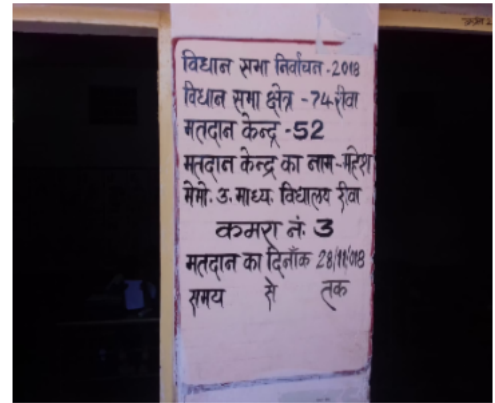 विधान सभा निर्वाचन-2018
विधान सभा क्षेत्र -74 रीवा
मतदान केन्द्र -52
मतदान केन्द्र का नाम-महेश
मेमो. उ. माध्य. विधालय रीवा
कमरा नं. 3
मतदान का दिनाँक 28/11/018
समय से तक